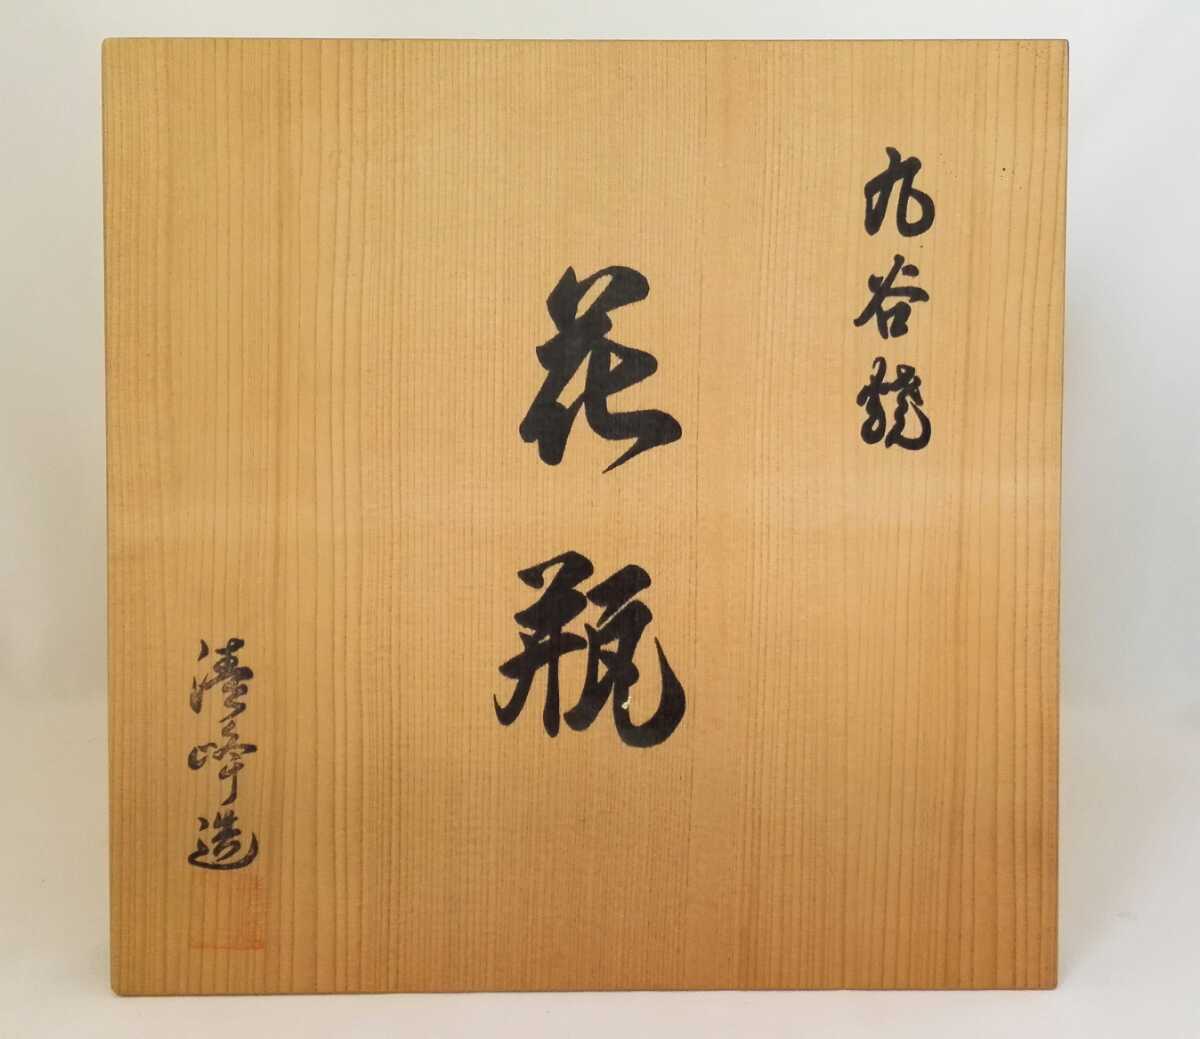 九谷焼
花瓶
清峰造